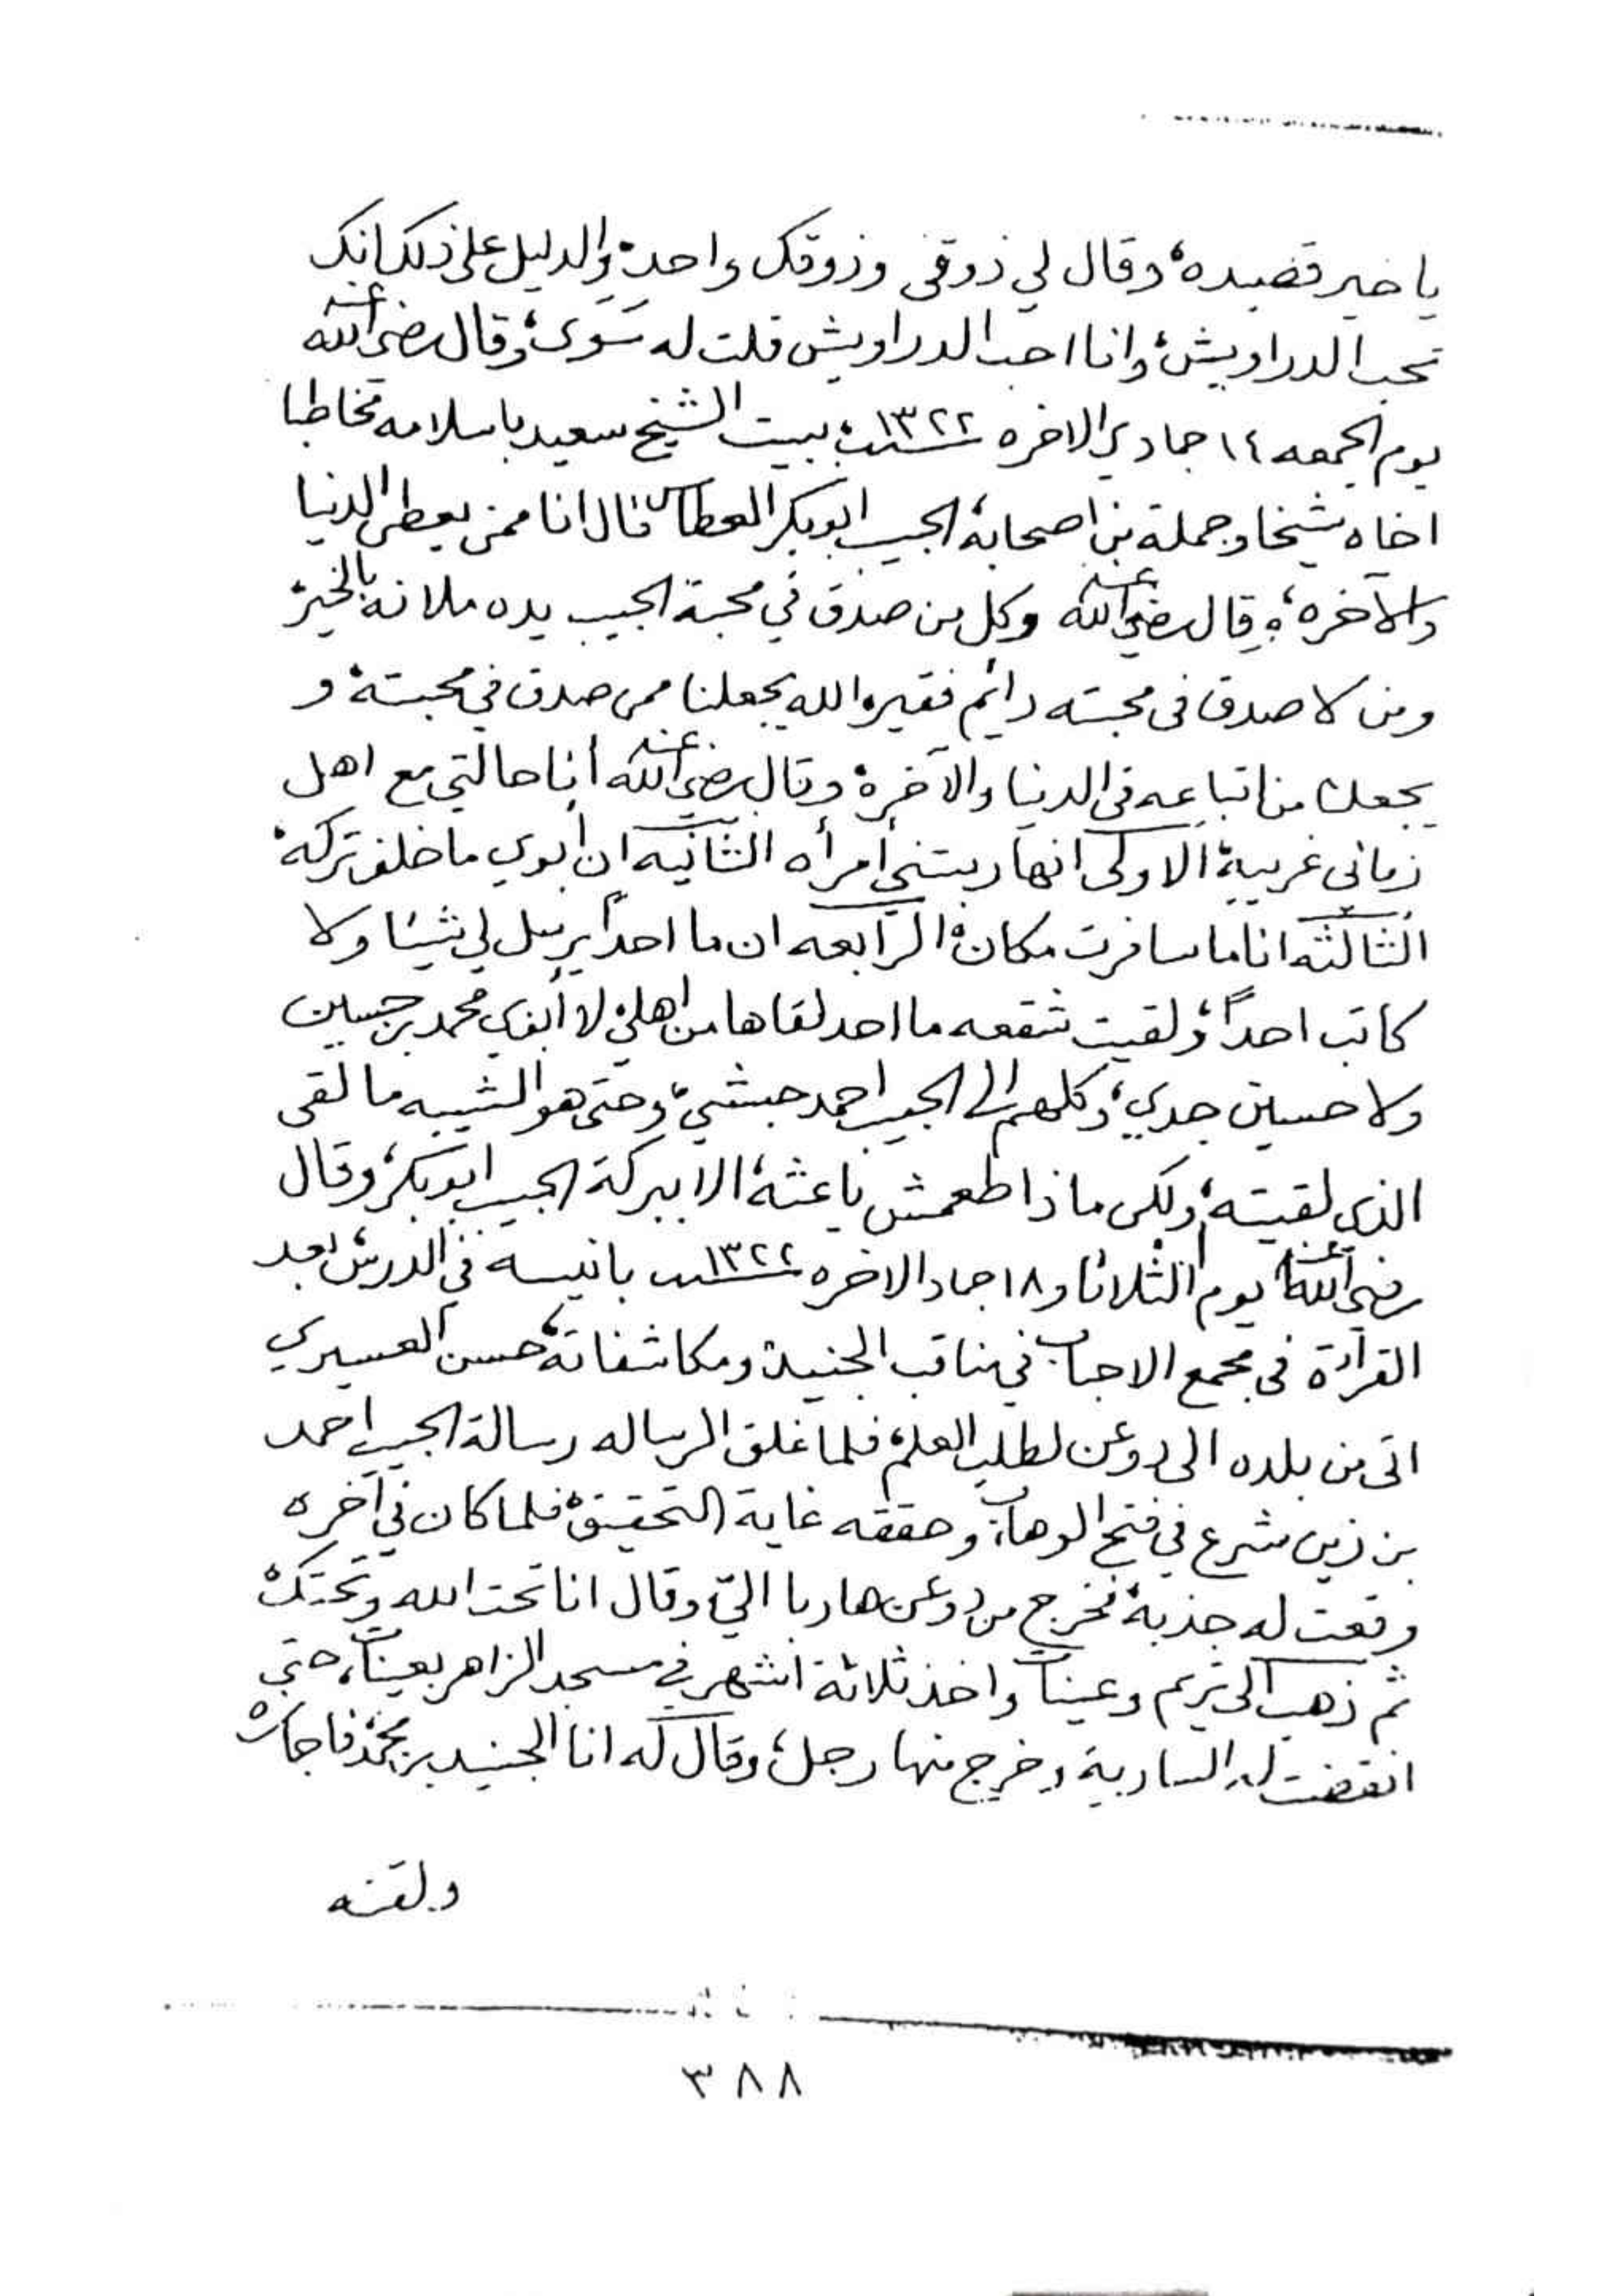 يا خير قصيده، وقال لي ذوقي وذوقك واحد، والدليل على ذلك انك
تحب الدراويش، وانا احب الدراويش قلت له سَوَى، وقال رضي الله عنه
يوم الجمعه ١٤ جمادي الاخره سنة ١٣٢٢ ببيت الشيخ سعيد باسلامه مخاطبا
اخاه شيخا وجملة من اصحابه، الحبيب ابوبكر العطاس قال انا ممن يعطى الدنيا
والآخره، وقال رضي الله عنه وكل من صدق في محبة الحبيب يده ملانه بالخير،
ومن لا صدق في محبته دائم فقيره الله يجعلنا ممن صدق في محبته، و
يجعلنا من اتباعه في الدنيا والآخرة، وقال رضي الله عنه انا حالتي مع اهل
زماني غريبة، الاولى انها ربتني امرأه الثانيه ان ابوي ما خلف تركه،
الثالثه انا ما سافرت مكان، الرابعه ان ما احداً يرسل لي شيئا ولا
كاتب احداً، ولقيت شقعه ما احد لقاها من اهلي لا ابوي محمد بن حسين
ولا حسين جدي، وكلهم الى الحبيب احمد حبشي، وحتى هو الشيبه ما لقى
الذي لقيته، ولكن ماذا طعمش ياعثه، الا ببركة الحبيب ابوبكر، وقال
رضي الله عنه يوم الثلاثا و ١٨ جماد الاخره سنة ١٣٢٢ بانيسه في الدرس بعد
القرآءة في مجمع الاحباب في مناقب الجنيد، ومكاشفاته، حسن العسيري
اتى من بلده الى دوعن لطلب العلم، فلما غلق الرساله رسالة الحبيب احمد
بن زين شرع في فتح الوهاب، وحققه غاية التحقيق، فلما كان في آخره
وقعت له جذبة، فخرج من دوعن هاربا اليّ، وقال انا تحت الله وتحتك،
ثم ذهب الى تريم وعينات واخذ ثلاثة اشهر في مسجد الزاهر بعينات، حتى
انقضت له السارية، وخرج منها رجل، وقال له انا الجنيد بن محمد، فاجازه
ولقنه
٣٨٨